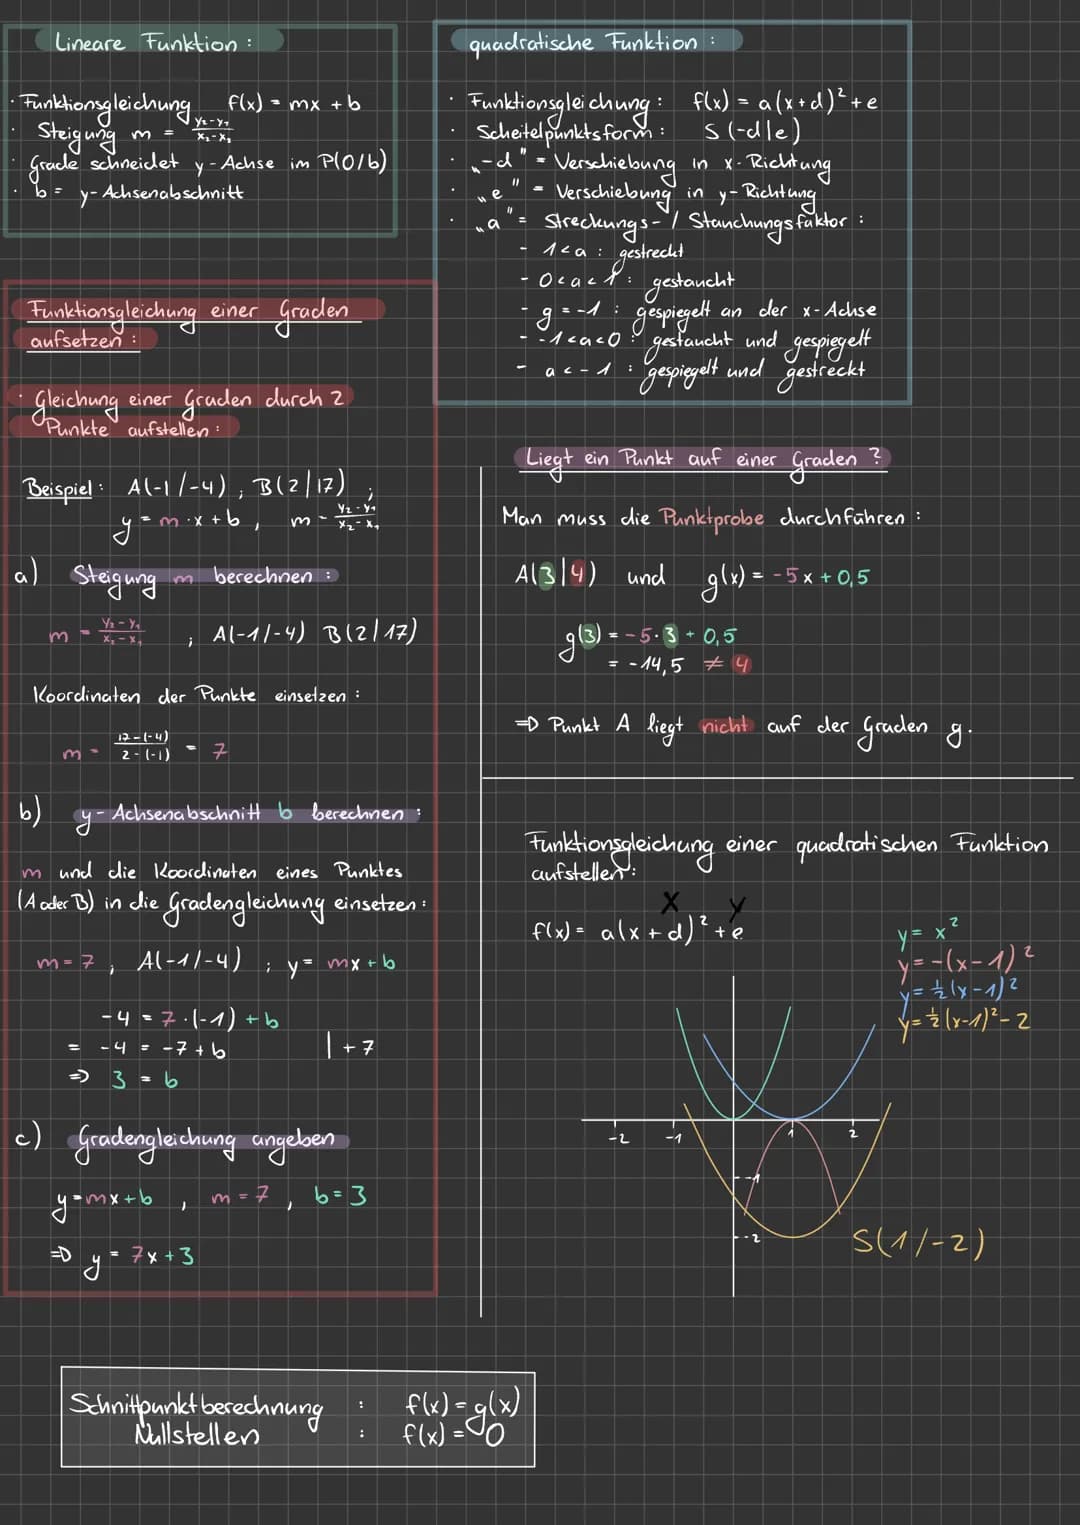 Lineare Funktion :
· Funktionsgleichung f(x) = mx + b
· Steigung m = y₂-y₁ / x₂-x₁
· Grade schneidet y-Achse im P(0/b)
· b = y-Achsenabschnitt
quadratische Funktion :
· Funktionsgleichung : f(x) = a(x+d)² + e
· Scheitelpunktsform : S(-d|e)
· „-d" = Verschiebung in x-Richtung
· „e" = Verschiebung in y-Richtung
· „a" = Streckungs- / Stauchungsfaktor :
- 1<a : gestreckt
- 0<a<1 : gestaucht
- g = -1 : gespiegelt an der x-Achse
- -1<a<0 : gestaucht und gespiegelt
- a<-1 : gespiegelt und gestreckt
Funktionsgleichung einer Graden
aufsetzen :
· Gleichung einer Graden durch 2
Punkte aufstellen :
Beispiel : A(-1/-4) ; B(2|17) ;
y = m·x + b , m = y₂-y₁ / x₂-x₁
a) Steigung m berechnen :
m = y₂-y₁ / x₂-x₁ ; A(-1/-4) B(2/17)
Koordinaten der Punkte einsetzen :
m = 17-(-4) / 2-(-1) = 7
b) y-Achsenabschnitt b berechnen :
m und die Koordinaten eines Punktes
(A oder B) in die Gradengleichung einsetzen :
m = 7 , A(-1/-4) ; y = mx + b
-4 = 7·(-1) + b
= -4 = -7 + b | +7
⇒ 3 = b
c) Gradengleichung angeben
y = mx + b , m = 7 , b = 3
⇒ y = 7x + 3
Liegt ein Punkt auf einer Graden ?
Man muss die Punktprobe durchführen :
A(3|4) und g(x) = -5x + 0,5
g(3) = -5·3 + 0,5
= -14,5 ≠ 4
⇒ Punkt A liegt nicht auf der Graden g.
Funktionsgleichung einer quadratischen Funktion
aufstellen :
X Y
f(x) = a(x+d)² + e
y = x²
y = -(x-1)²
y = ½(x-1)²
y = ½(x-1)² - 2
-2 -1 1 2
-1
-2
S(1/-2)
Schnittpunktberechnung : f(x) = g(x)
Nullstellen : f(x) = 0